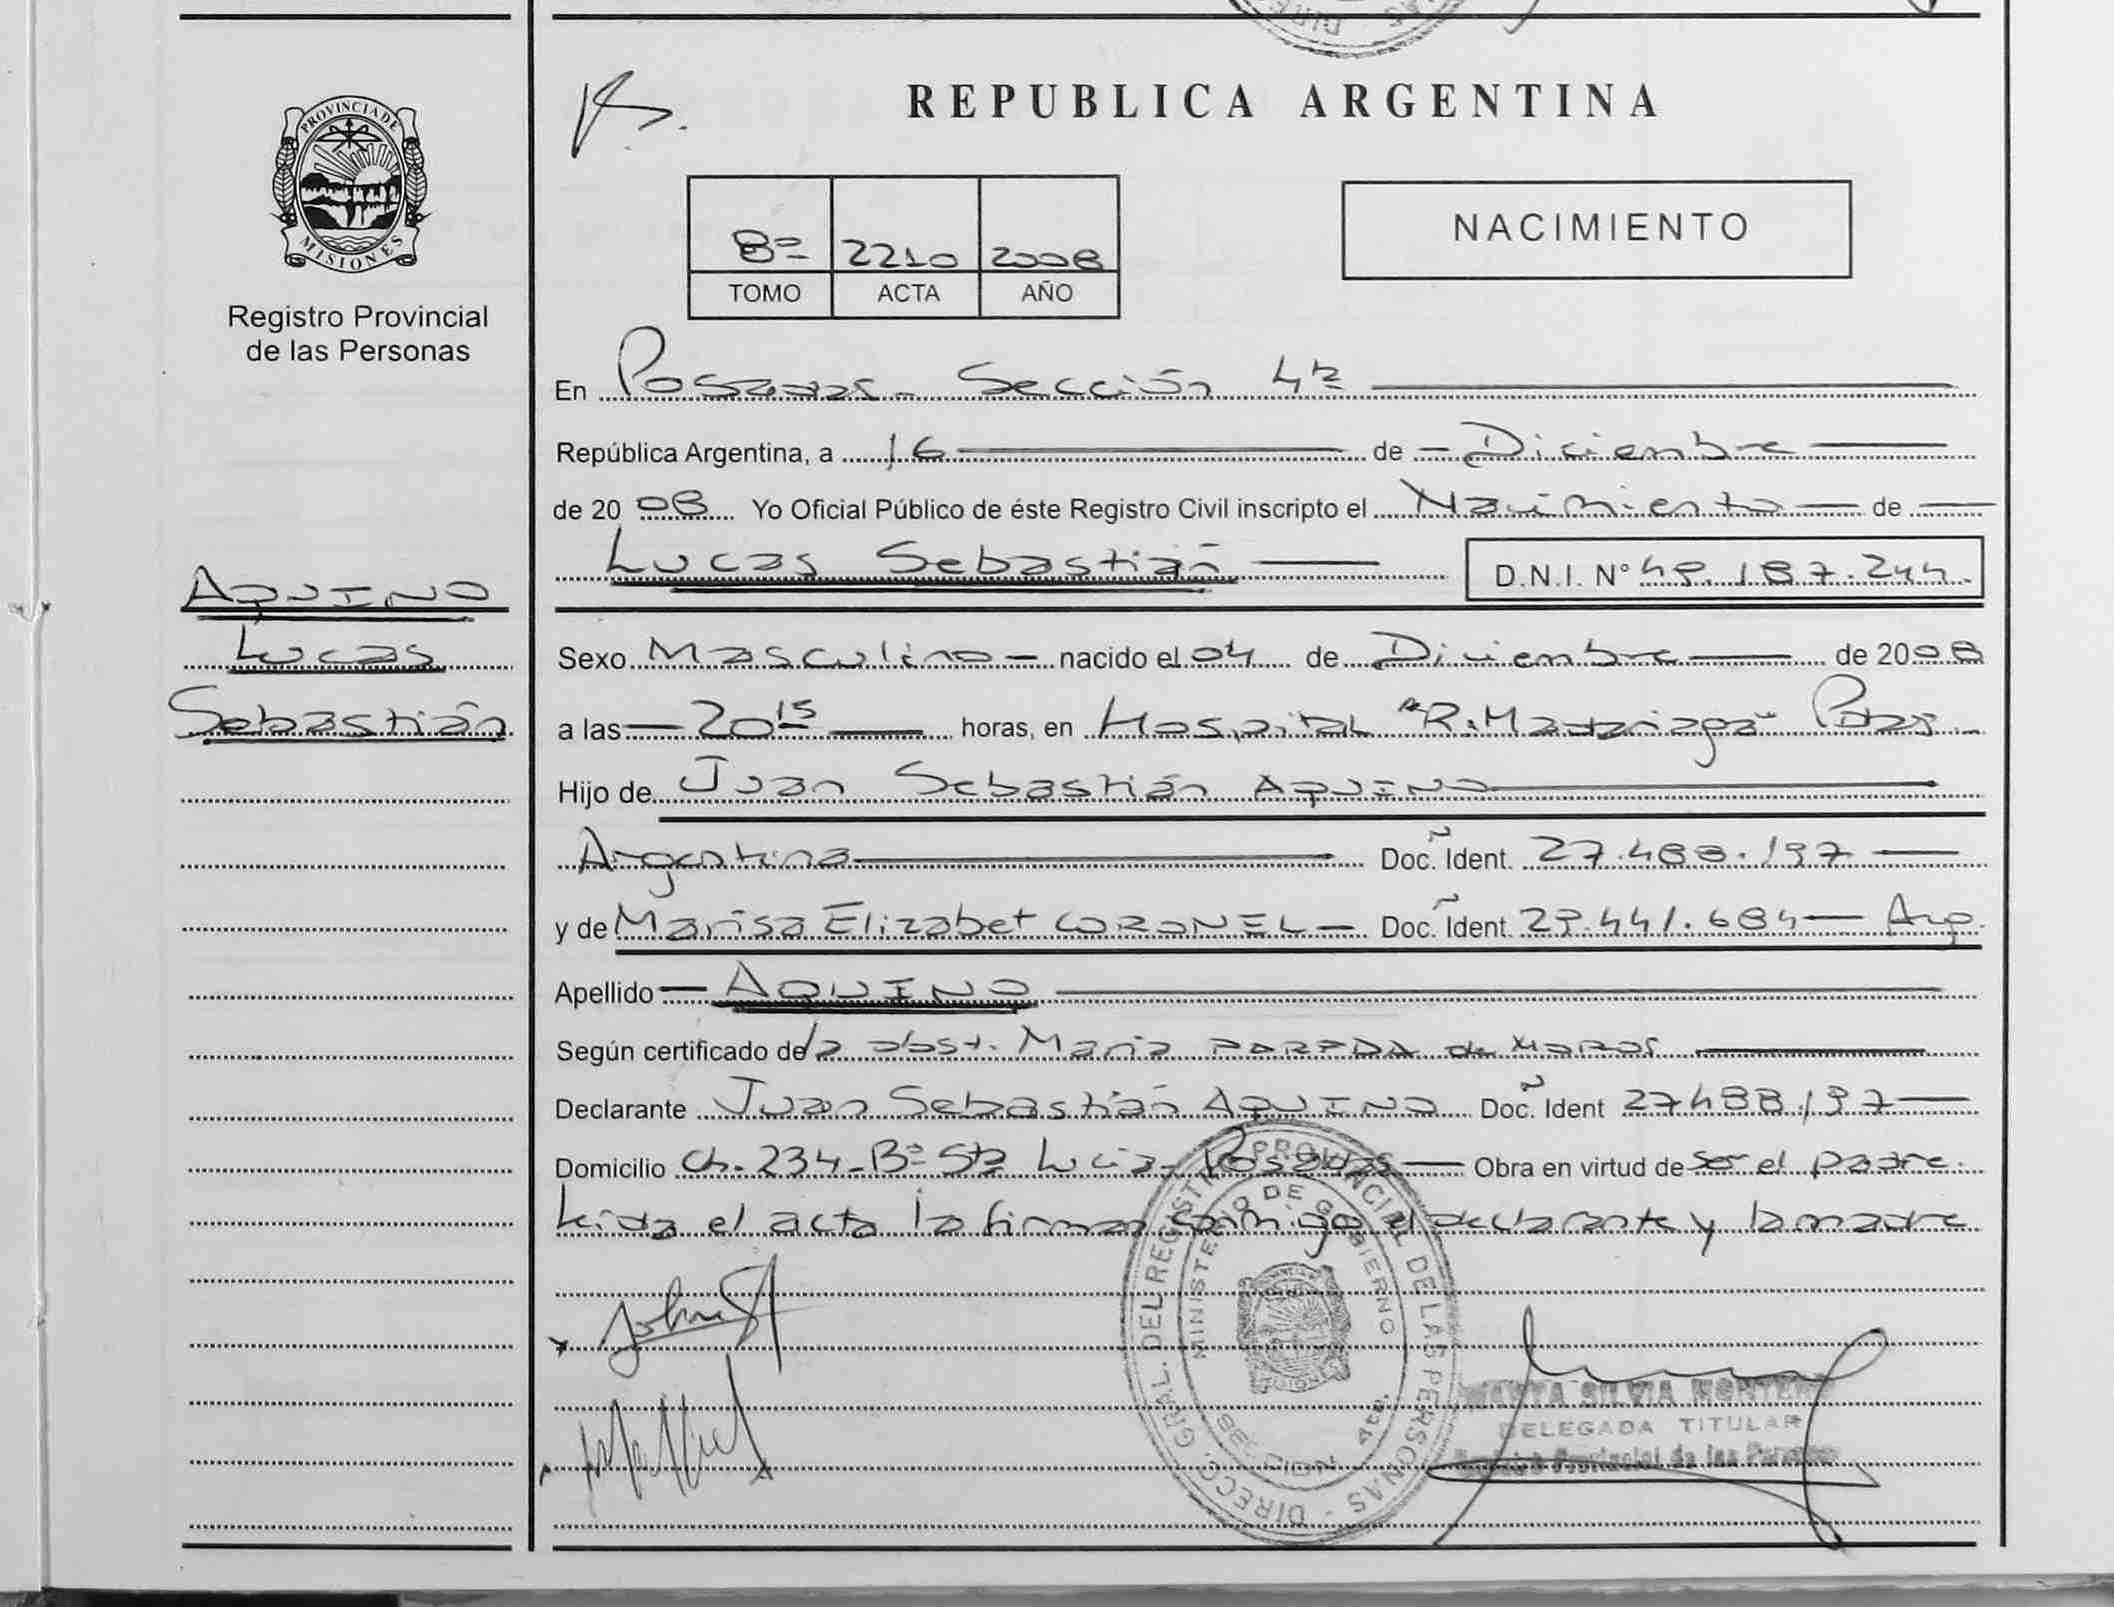 REPUBLICA ARGENTINA
PROVINCIA DE
MISIONES
Registro Provincial
de las Personas
8º 2210 2008
TOMO ACTA AÑO
NACIMIENTO
En Posadas - Sección 4ta
República Argentina, a 16 de Diciembre
de 2008 Yo Oficial Público de éste Registro Civil inscripto el Nacimiento de
Lucas Sebastián D.N.I. Nº 49.187.244.
AQUINO
Lucas
Sebastián
Sexo Masculino nacido el 04 de Diciembre de 2008
a las 20 15 horas, en Hospital "R. Madariaga" Pdas.
Hijo de Juan Sebastián AQUINO
Argentina Doc. Ident. 27.488.197
y de Marisa Elizabet CORONEL Doc. Ident. 29.441.684 Arg.
Apellido AQUINO
Según certificado de la obst. María de
Declarante Juan Sebastián AQUINO Doc. Ident 27488.197
Domicilio Ch. 234 - Bº Sta Lucia - Posadas Obra en virtud de ser el padre.
Leida el acta la firman conmigo el declarante y la madre
DIRECC. GRAL. DEL REGISTRO PROVINCIAL DE LAS PERSONAS
MINISTERIO DE GOBIERNO
SECCION 4ta.
MARTA SILVIA
DELEGADA TITULAR
Registro Provincial de las Personas